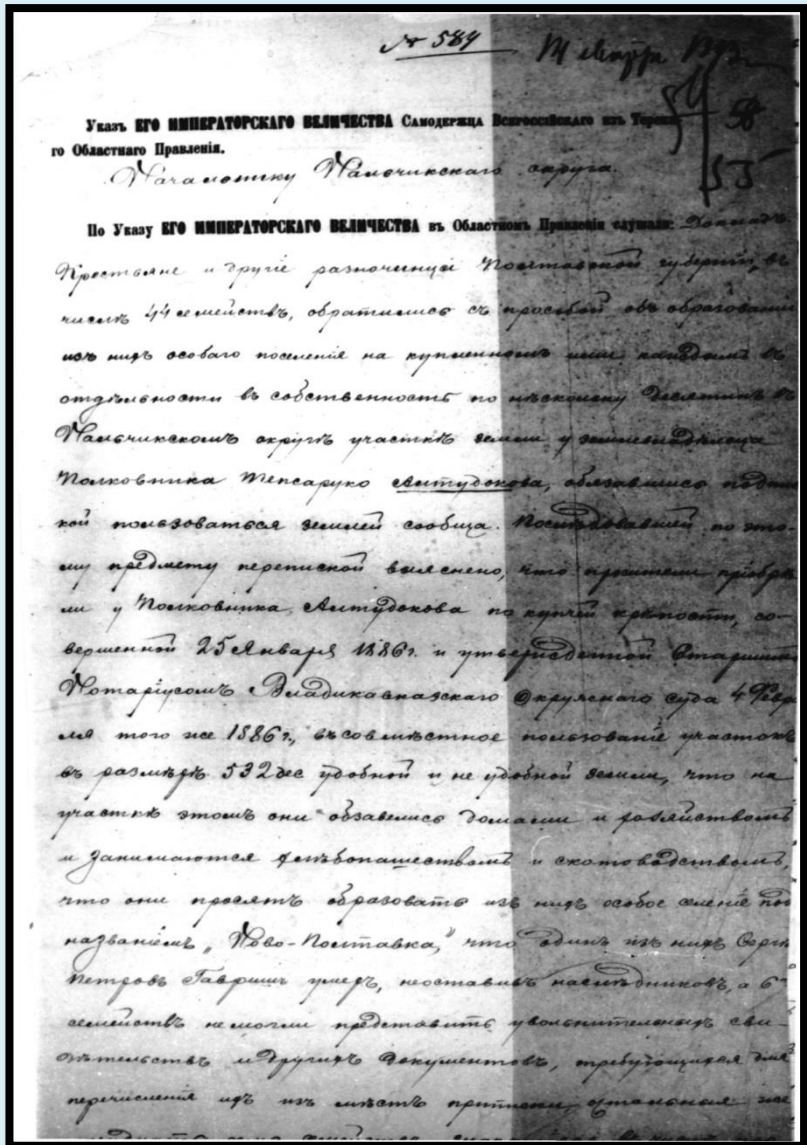 № 584
58
55
Указъ ЕГО ИМПЕРАТОРСКАГО ВЕЛИЧЕСТВА Самодержца Всероссійскаго изъ Терска-
го Областнаго Правленія.
Начальнику Нальчикскаго округа.
По Указу ЕГО ИМПЕРАТОРСКАГО ВЕЛИЧЕСТВА въ Областномъ Правленіи слушали: Докладъ
Крестьяне и другіе разночинцы Полтавской губерніи, въ
числѣ 44 семействъ, обратились съ просьбой объ образованіи
изъ нихъ особаго поселенія на купленномъ ими каждымъ въ
отдѣльности въ собственность по нѣскольку десятинъ въ
Нальчикскомъ округѣ участкѣ земли у землевладѣльца
Полковника Тепсаруко Алтудокова, обязавшись подпис
кой пользоваться землей сообща. Послѣдовавшей по это-
му предмету перепиской выяснено, что просители пріобрѣ
ли у Полковника Алтудокова по купчей крѣпости, со-
вершенной 25 Января 1886 г. и утвержденной Старшимъ
Нотаріусомъ Владикавказскаго Окружнаго суда 4 Февра
ля того же 1886 г., въ совмѣстное пользованіе участокъ
въ размѣрѣ 532 дес удобной и не удобной земли, что на
участкѣ этомъ они обзавелись домами и хозяйствомъ
и занимаются хлѣбопашествомъ и скотоводствомъ,
что они просятъ образовать изъ нихъ особое селеніе под
названіемъ „Ново-Полтавка,“ что одинъ изъ нихъ Сергѣй
Петровъ Гавришъ умеръ, неоставивъ наслѣдниковъ, а 6
семействъ не могли представить увольнительныхъ сви-
дѣтельствъ и другихъ документовъ, требующихся для
перечисленія ихъ изъ мѣстъ приписки, остальныя же